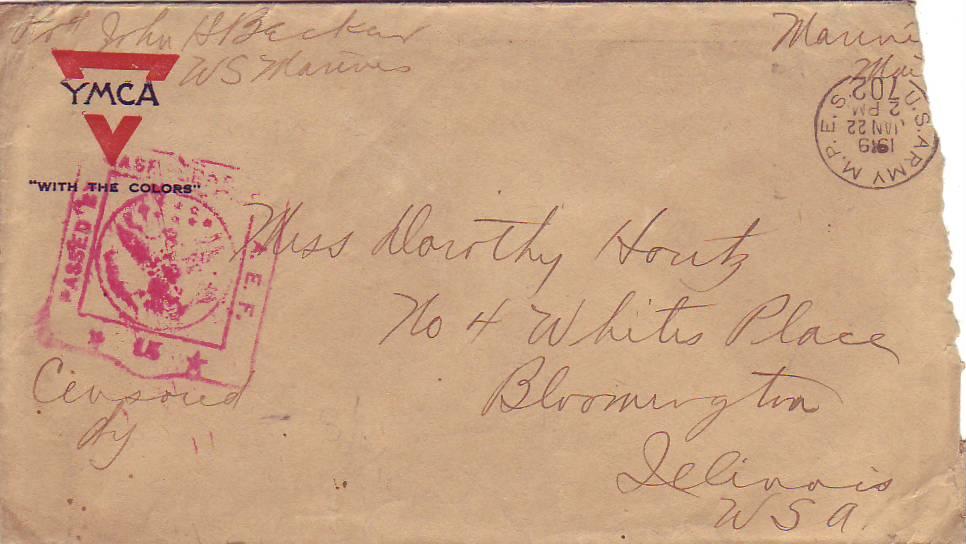 John H Becker
US Marines
Marine
Mai
YMCA
"WITH THE COLORS"
U.S. ARMY M.P.E.S.
702
2 PM
JAN 22
1919
PASSED
A.E.F.
Miss Dorothy Houtz
No 4 Whites Place
Bloomington
Illinois
USA
Censored
by